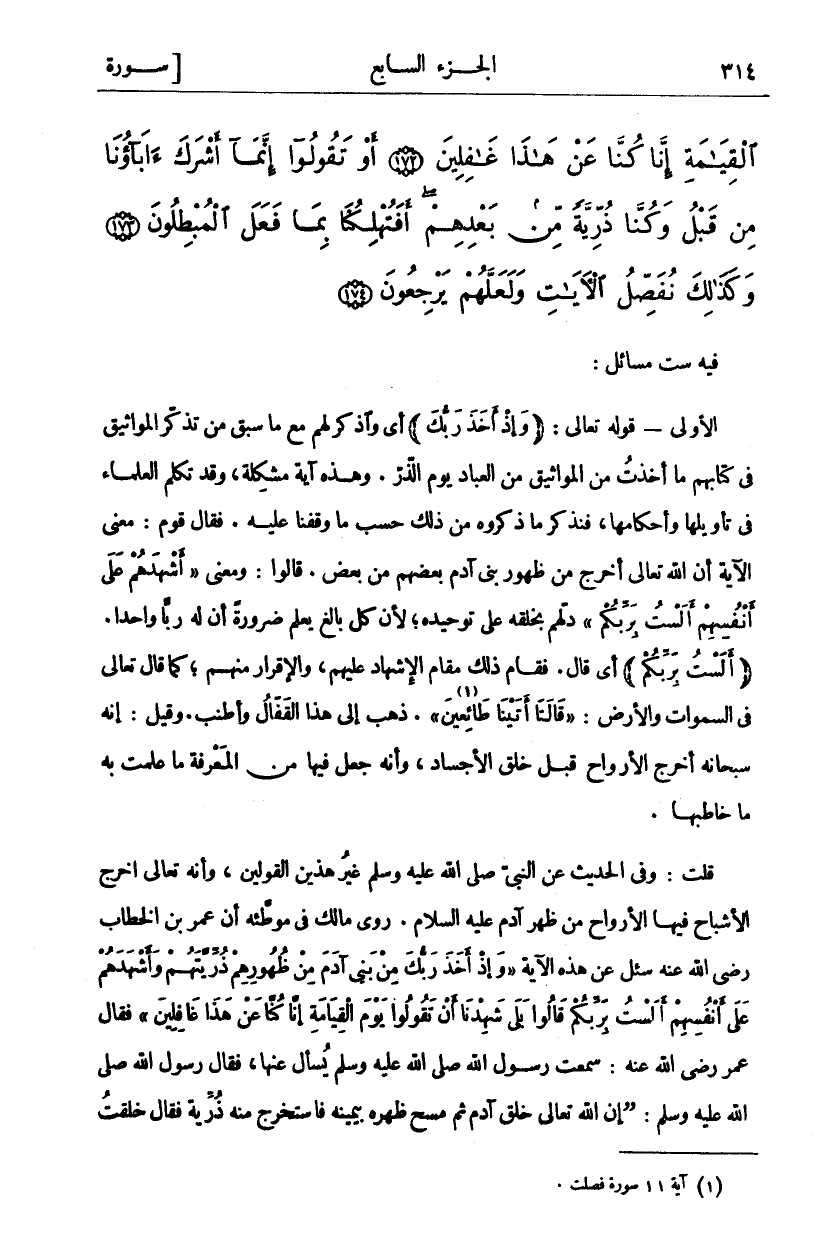 ٣١٤ الجزء السابع [ سورة
ٱلْقِيَـٰمَةِ إِنَّا كُنَّا عَنْ هَـٰذَا غَـٰفِلِينَ ﴿١٧٢﴾ أَوْ تَقُولُوٓا۟ إِنَّمَآ أَشْرَكَ ءَابَآؤُنَا
مِن قَبْلُ وَكُنَّا ذُرِّيَّةً مِّنۢ بَعْدِهِمْ ۖ أَفَتُهْلِكُنَا بِمَا فَعَلَ ٱلْمُبْطِلُونَ ﴿١٧٣﴾
وَكَذَٰلِكَ نُفَصِّلُ ٱلْـَٔايَـٰتِ وَلَعَلَّهُمْ يَرْجِعُونَ ﴿١٧٤﴾
فيه ست مسائل :
الأولى — قوله تعالى : ﴿ وَإِذْ أَخَذَ رَبُّكَ ﴾ أى وٱذكر لهم مع ما سبق من تذكّر المواثيق
فى كتابهم ما أخذتُ من المواثيق من العباد يوم الذَّرّ . وهذه آية مشكلة، وقد تكلم العلماء
فى تأويلها وأحكامها، فنذكر ما ذكروه من ذلك حسب ما وقفنا عليه . فقال قوم : معنى
الآية أن الله تعالى أخرج من ظهور بنى آدم بعضهم من بعض . قالوا : ومعنى « أَشْهَدَهُمْ عَلَى
أَنْفُسِهِمْ أَلَسْتُ بِرَبِّكُمْ » دلّهم بخلقه على توحيده؛ لأن كل بالغ يعلم ضرورةً أن له ربًّا واحدا.
﴿ أَلَسْتُ بِرَبِّكُمْ ﴾ أى قال. فقام ذلك مقام الإشهاد عليهم، والإقرار منهم ؛ كما قال تعالى
فى السموات والأرض : «قَالَتَا أَتَيْنَا طَائِعِينَ»(١) . ذهب إلى هذا القَفّالُ وأطنب. وقيل : إنه
سبحانه أخرج الأرواح قبل خلق الأجساد ، وأنه جعل فيها من المَعْرفة ما علمت به
ما خاطبها .
قلت : وفى الحديث عن النبىّ صلى الله عليه وسلم غيرُ هذين القولين ، وأنه تعالى اخرج
الأشباح فيها الأرواح من ظهر آدم عليه السلام . روى مالك فى موطّئه أن عمر بن الخطاب
رضى الله عنه سئل عن هذه الآية «وَإِذْ أَخَذَ رَبُّكَ مِنْ بَنِى آدَمَ مِنْ ظُهُورِهِمْ ذُرِّيَّتَهُمْ وَأَشْهَدَهُمْ
عَلَى أَنْفُسِهِمْ أَلَسْتُ بِرَبِّكُمْ قَالُوا بَلَى شَهِدْنَا أَنْ تَقُولُوا يَوْمَ الْقِيَامَةِ إِنَّا كُنَّا عَنْ هَذَا غَافِلِينَ » فقال
عمر رضى الله عنه : سمعت رسول الله صلى الله عليه وسلم يُسأل عنها، فقال رسول الله صلى
الله عليه وسلم : ”إن الله تعالى خلق آدم ثم مسح ظهره بيمينه فاستخرج منه ذُرِّية فقال خلقتُ
(١) آية ١١ سورة فصلت .